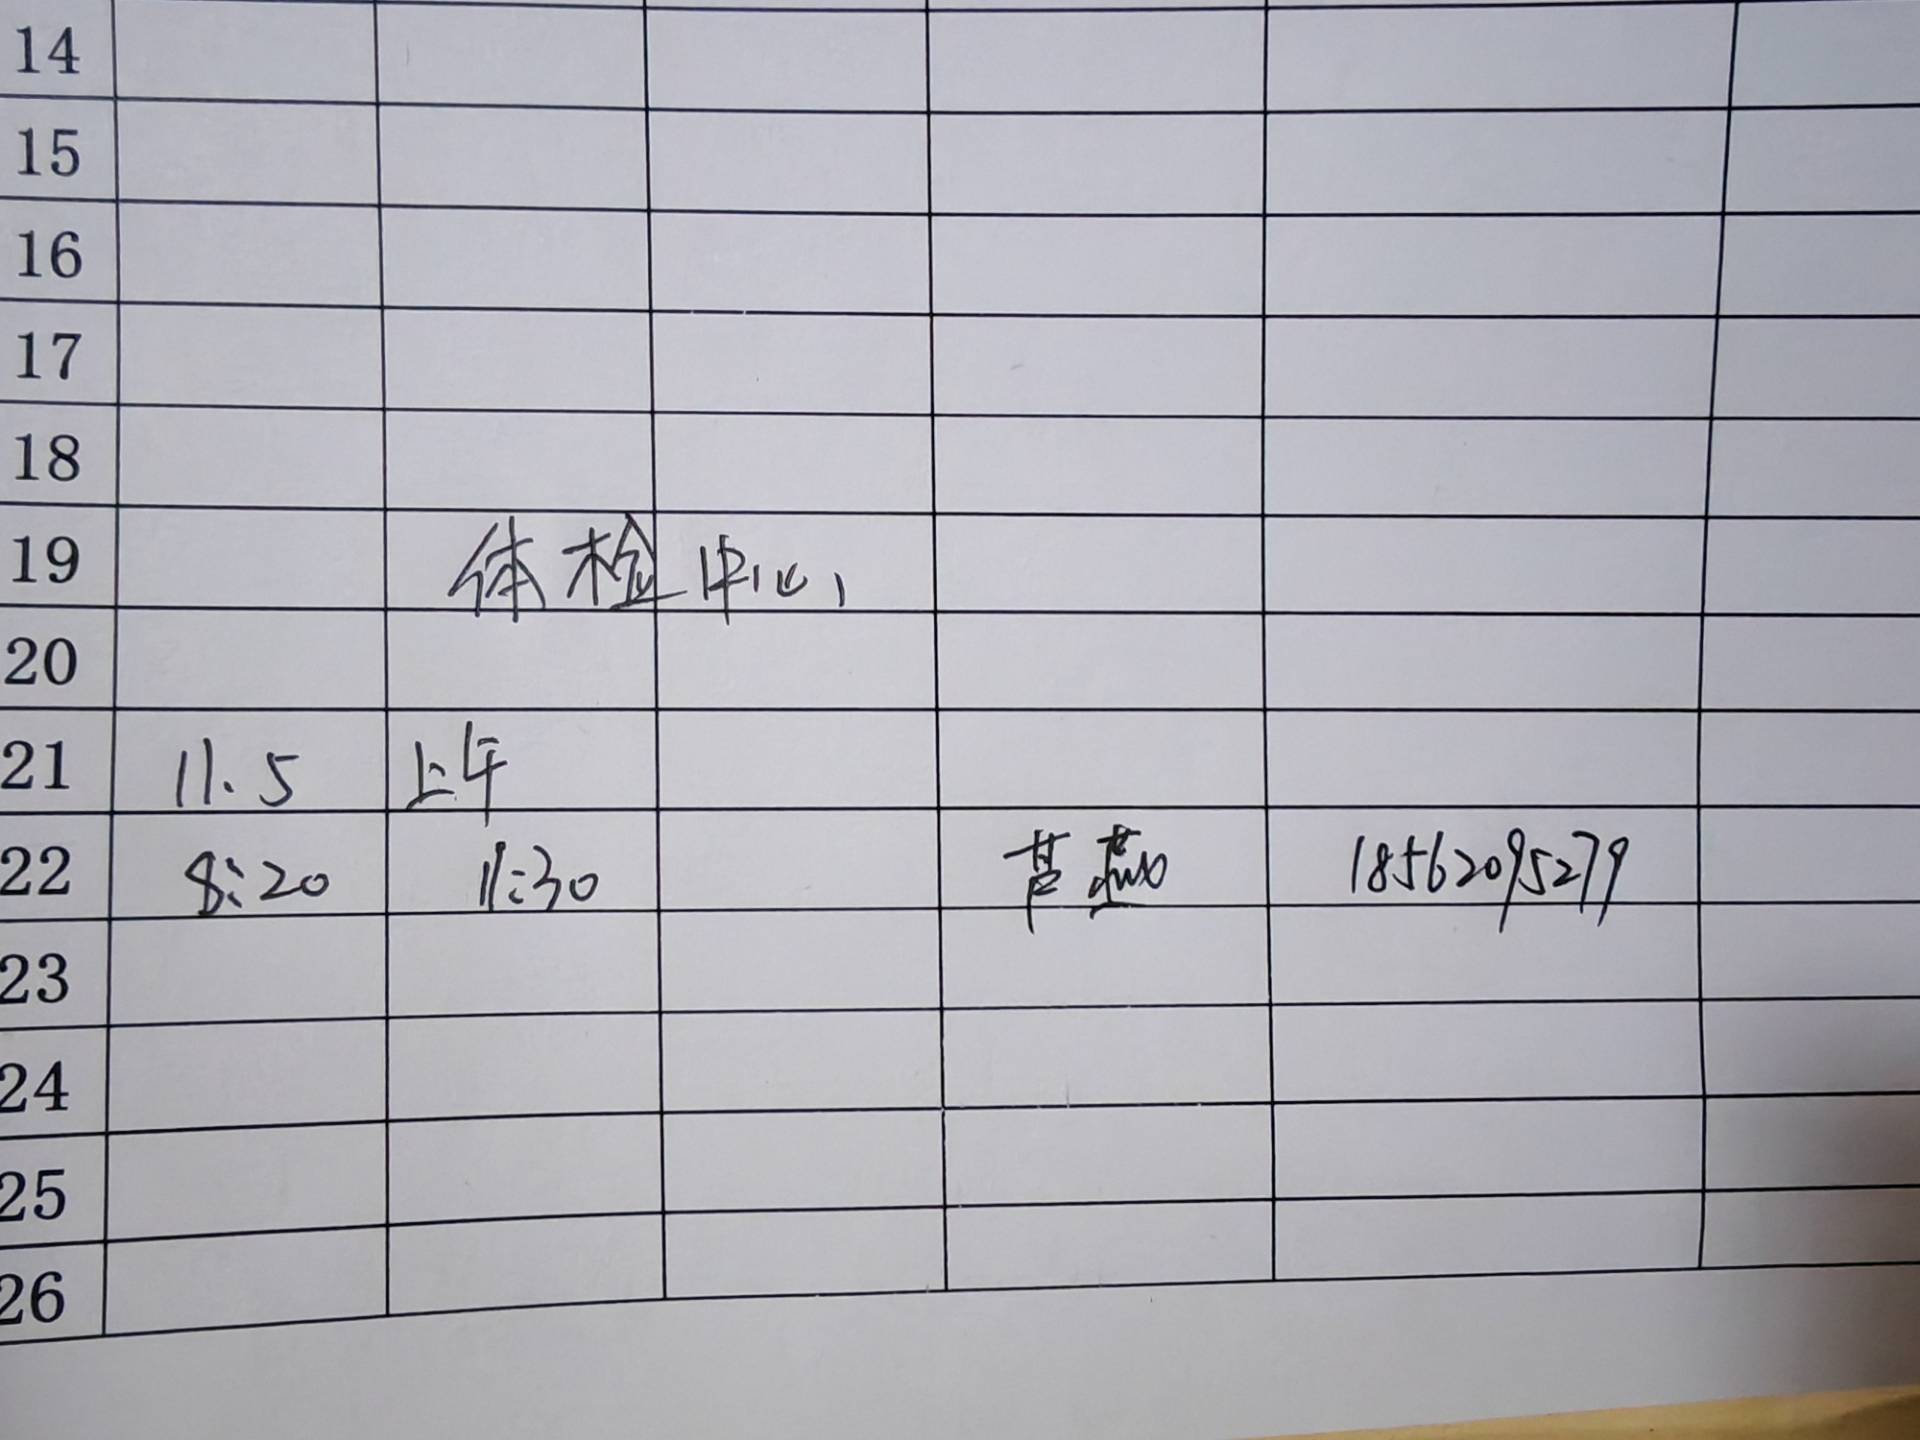 14
15
16
17
18
19 体检中心
20
21 11.5 上午
22 8:20 11:30 18562095279
23
24
25
26